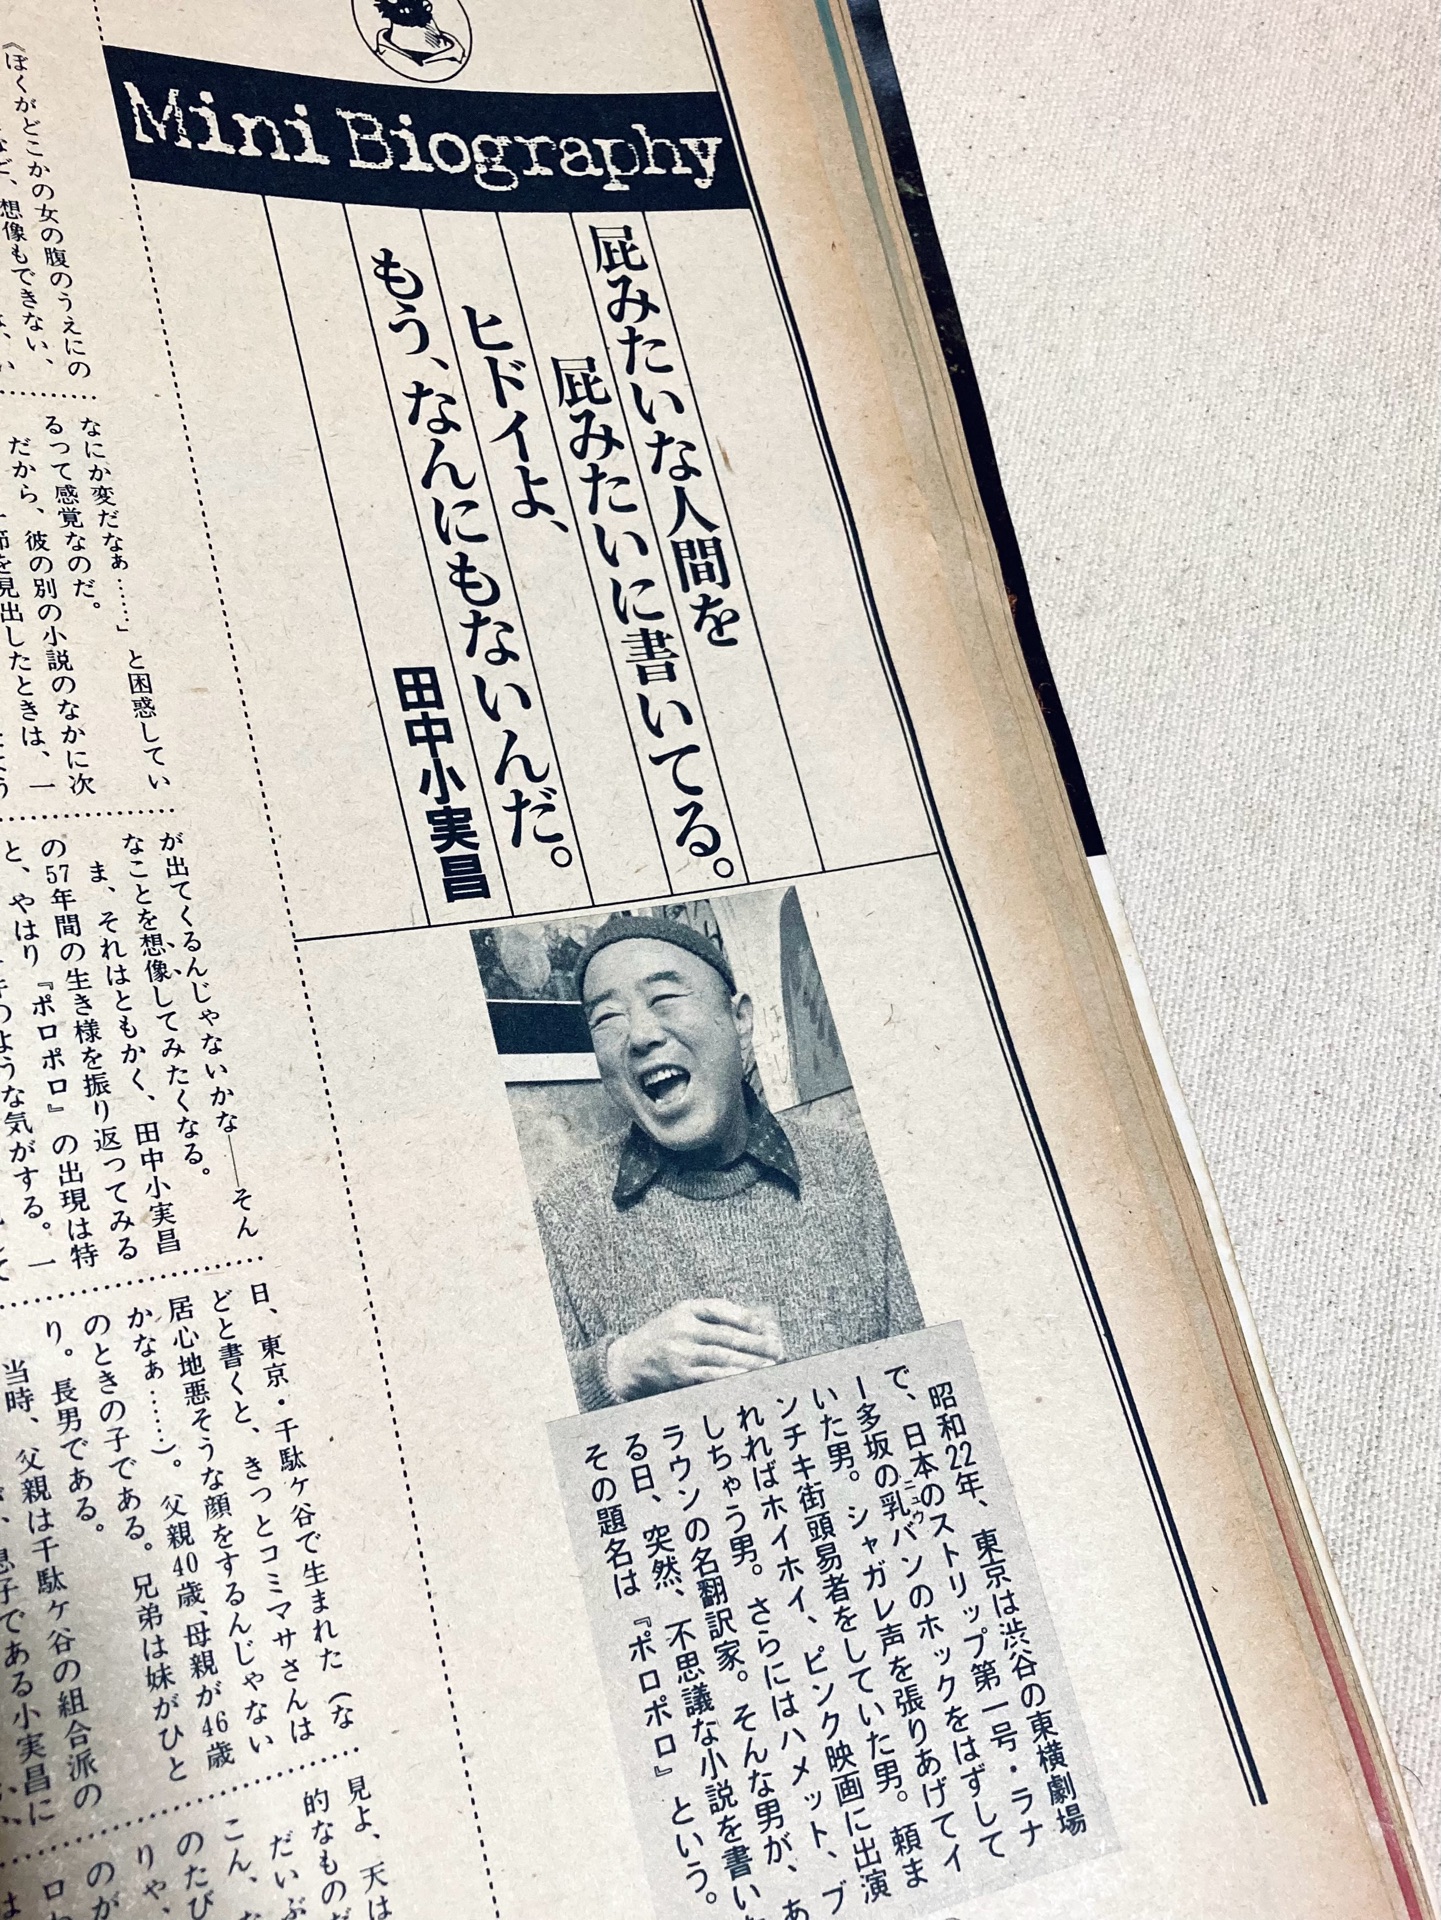 Mini Biography
屁みたいな人間を
屁みたいに書いてる。
ヒドイよ、
もう、なんにもないんだ。
田中小実昌
昭和22年、東京は渋谷の東横劇場
で、日本のストリップ第一号・ラナ
ー多坂の乳バンのホックをはずして
ニュウ
いた男。シャガレ声を張りあげてイ
ンチキ街頭易者をしていた男。頼ま
れればホイホイ、ピンク映画に出演
しちゃう男。さらにはハメット、ブ
ラウンの名翻訳家。そんな男が、あ
る日、突然、不思議な小説を書いた
その題名は『ポロポロ』という。
《ぼくがどこかの女の腹のうえにの
想像もできない、
なにか変だなぁ……」と困惑してい
るって感覚なのだ。
だから、彼の別の小説のなかに次
節を見出したときは、一
が出てくるんじゃないかな――そん
なことを想像してみたくなる。
ま、それはともかく、田中小実昌
の57年間の生き様を振り返ってみる
と、やはり『ポロポロ』の出現は特
のような気がする。一
日、東京・千駄ヶ谷で生まれた（な
どと書くと、きっとコミマサさんは
居心地悪そうな顔をするんじゃない
かなぁ……）。父親40歳、母親が46歳
のときの子である。兄弟は妹がひと
り。長男である。
当時、父親は千駄ヶ谷の組合派の
息子である小実昌に
見よ、天は
的なもの
だいぶ
こん、
のたび
りゃ、
のが